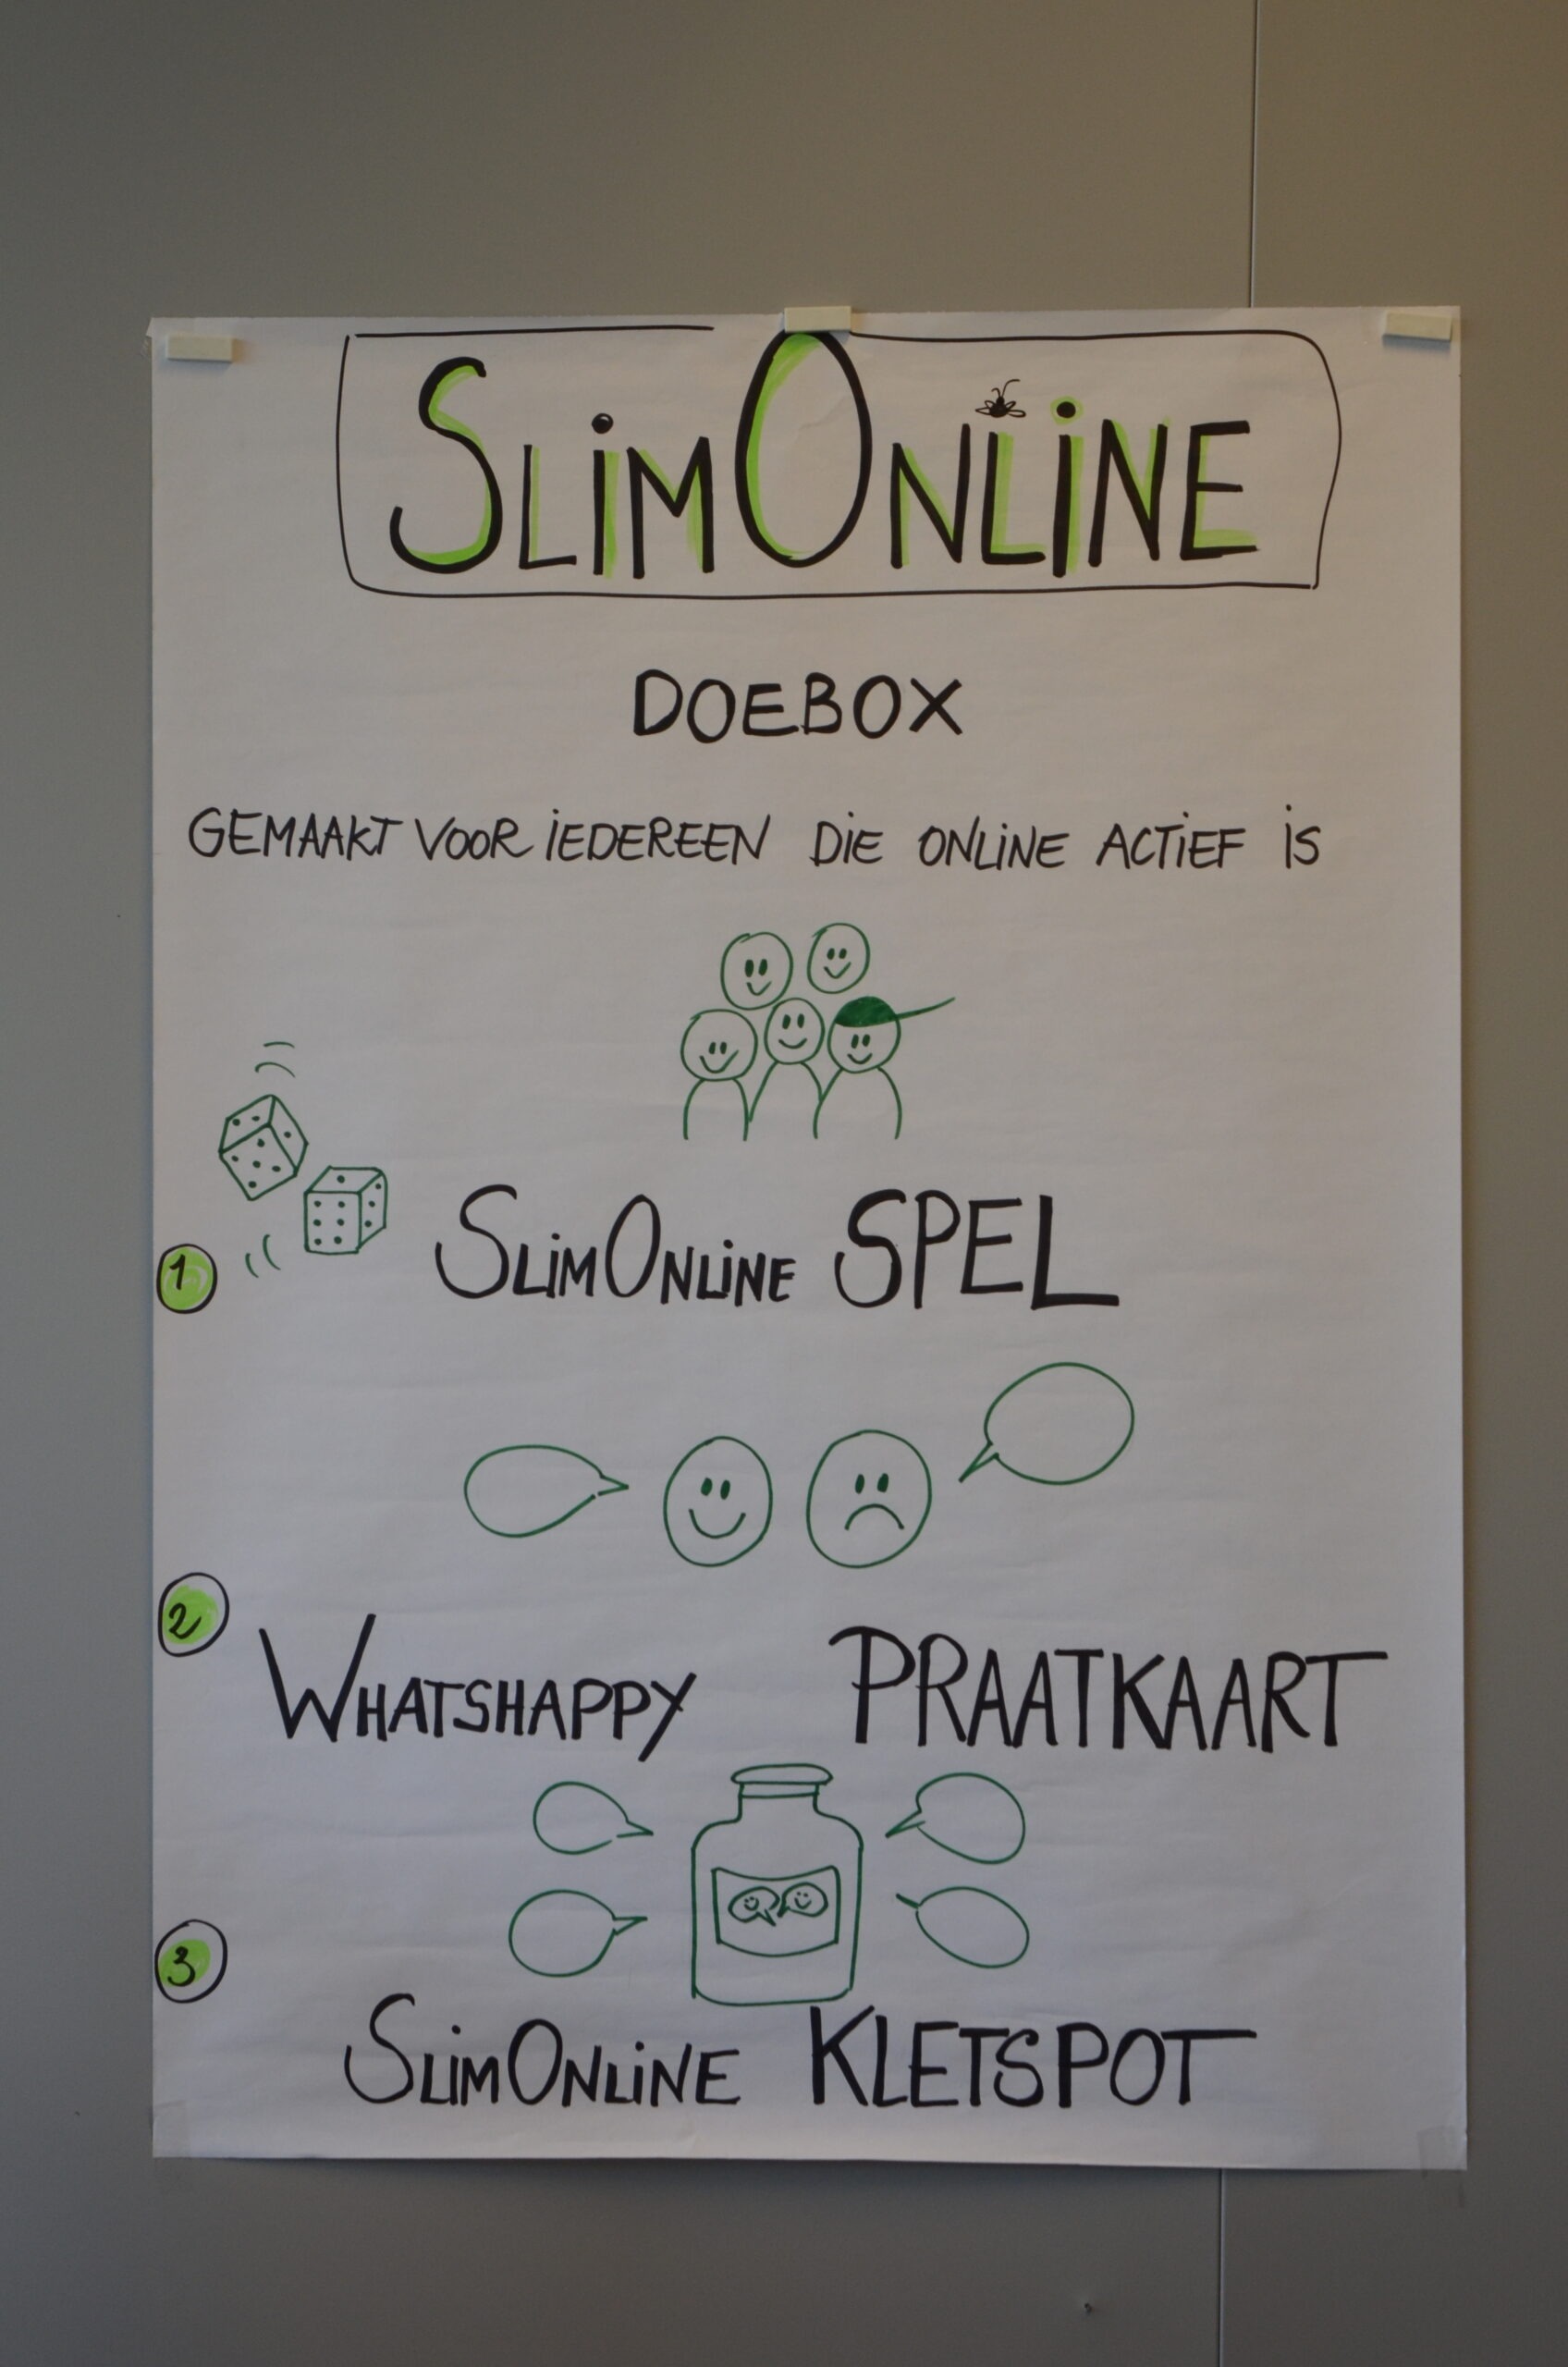 SLiMONLiNE
DOEBOX
GEMAAKT VOOR iEDEREEN DiE ONLiNE ACTiEF iS
1
SLiMONLiNE SPEL
2
WHATSHAPPY PRAATKAART
3
SLiMONLiNE KLETSPOT